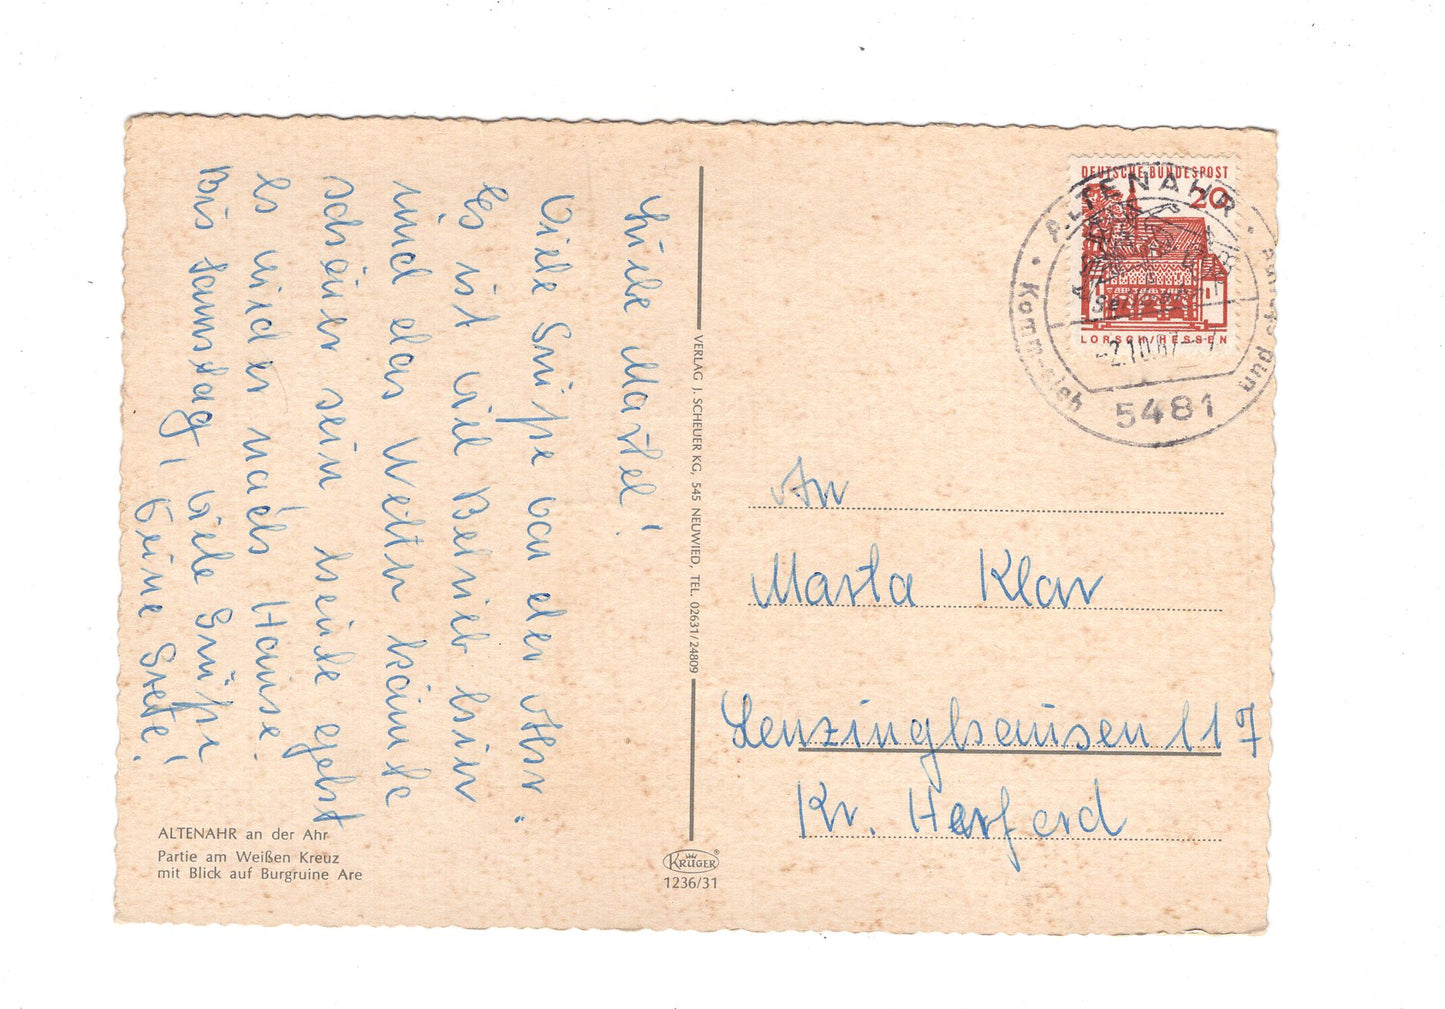 Liebe Martel!
Viele Grüße von der Ahr.
Es ist viel Betrieb hier
und das Wetter könnte
schöner sein heute gehst
es wieder nach Hause.
Bis Samstag, viele Grüße!
Deine Grete!
ALTENAHR an der Ahr
Partie am Weißen Kreuz
mit Blick auf Burgruine Are
VERLAG J. SCHEUER KG, 545 NEUWIED, TEL. 02631/24809
KRÜGER®
1236/31
DEUTSCHE BUNDESPOST
20
LORSCH/HESSEN
ALTENAHR
-2.10.67
5481
An
Marta Klar
Lenzinghausen 117
Kr. Herford